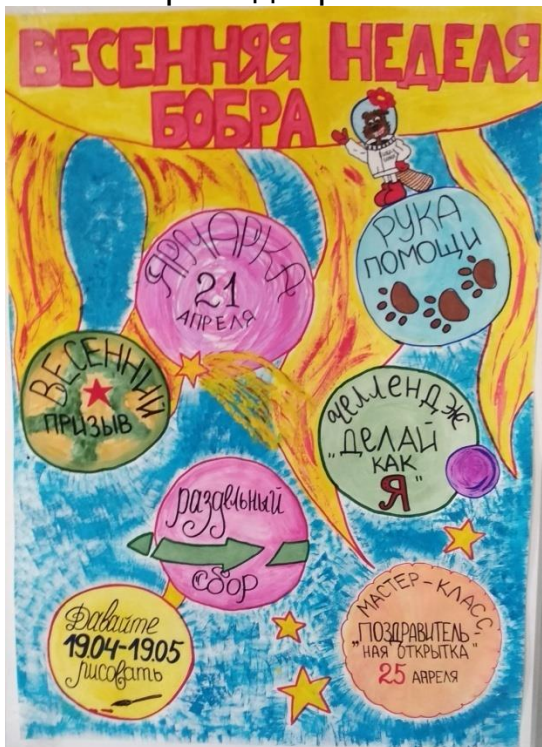 ВЕСЕННЯЯ НЕДЕЛЯ
БОБРА
ЯРМАРКА
21
АПРЕЛЯ
РУКА
ПОМОЩИ
ВЕСЕННИЙ
ПРИЗЫВ
челлендж
"ДЕЛАЙ
КАК
Я"
раздельный
сбор
Давайте
19.04-19.05
рисовать
МАСТЕР-КЛАСС,
"ПОЗДРАВИТЕЛЬ
НАЯ ОТКРЫТКА"
25 АПРЕЛЯ